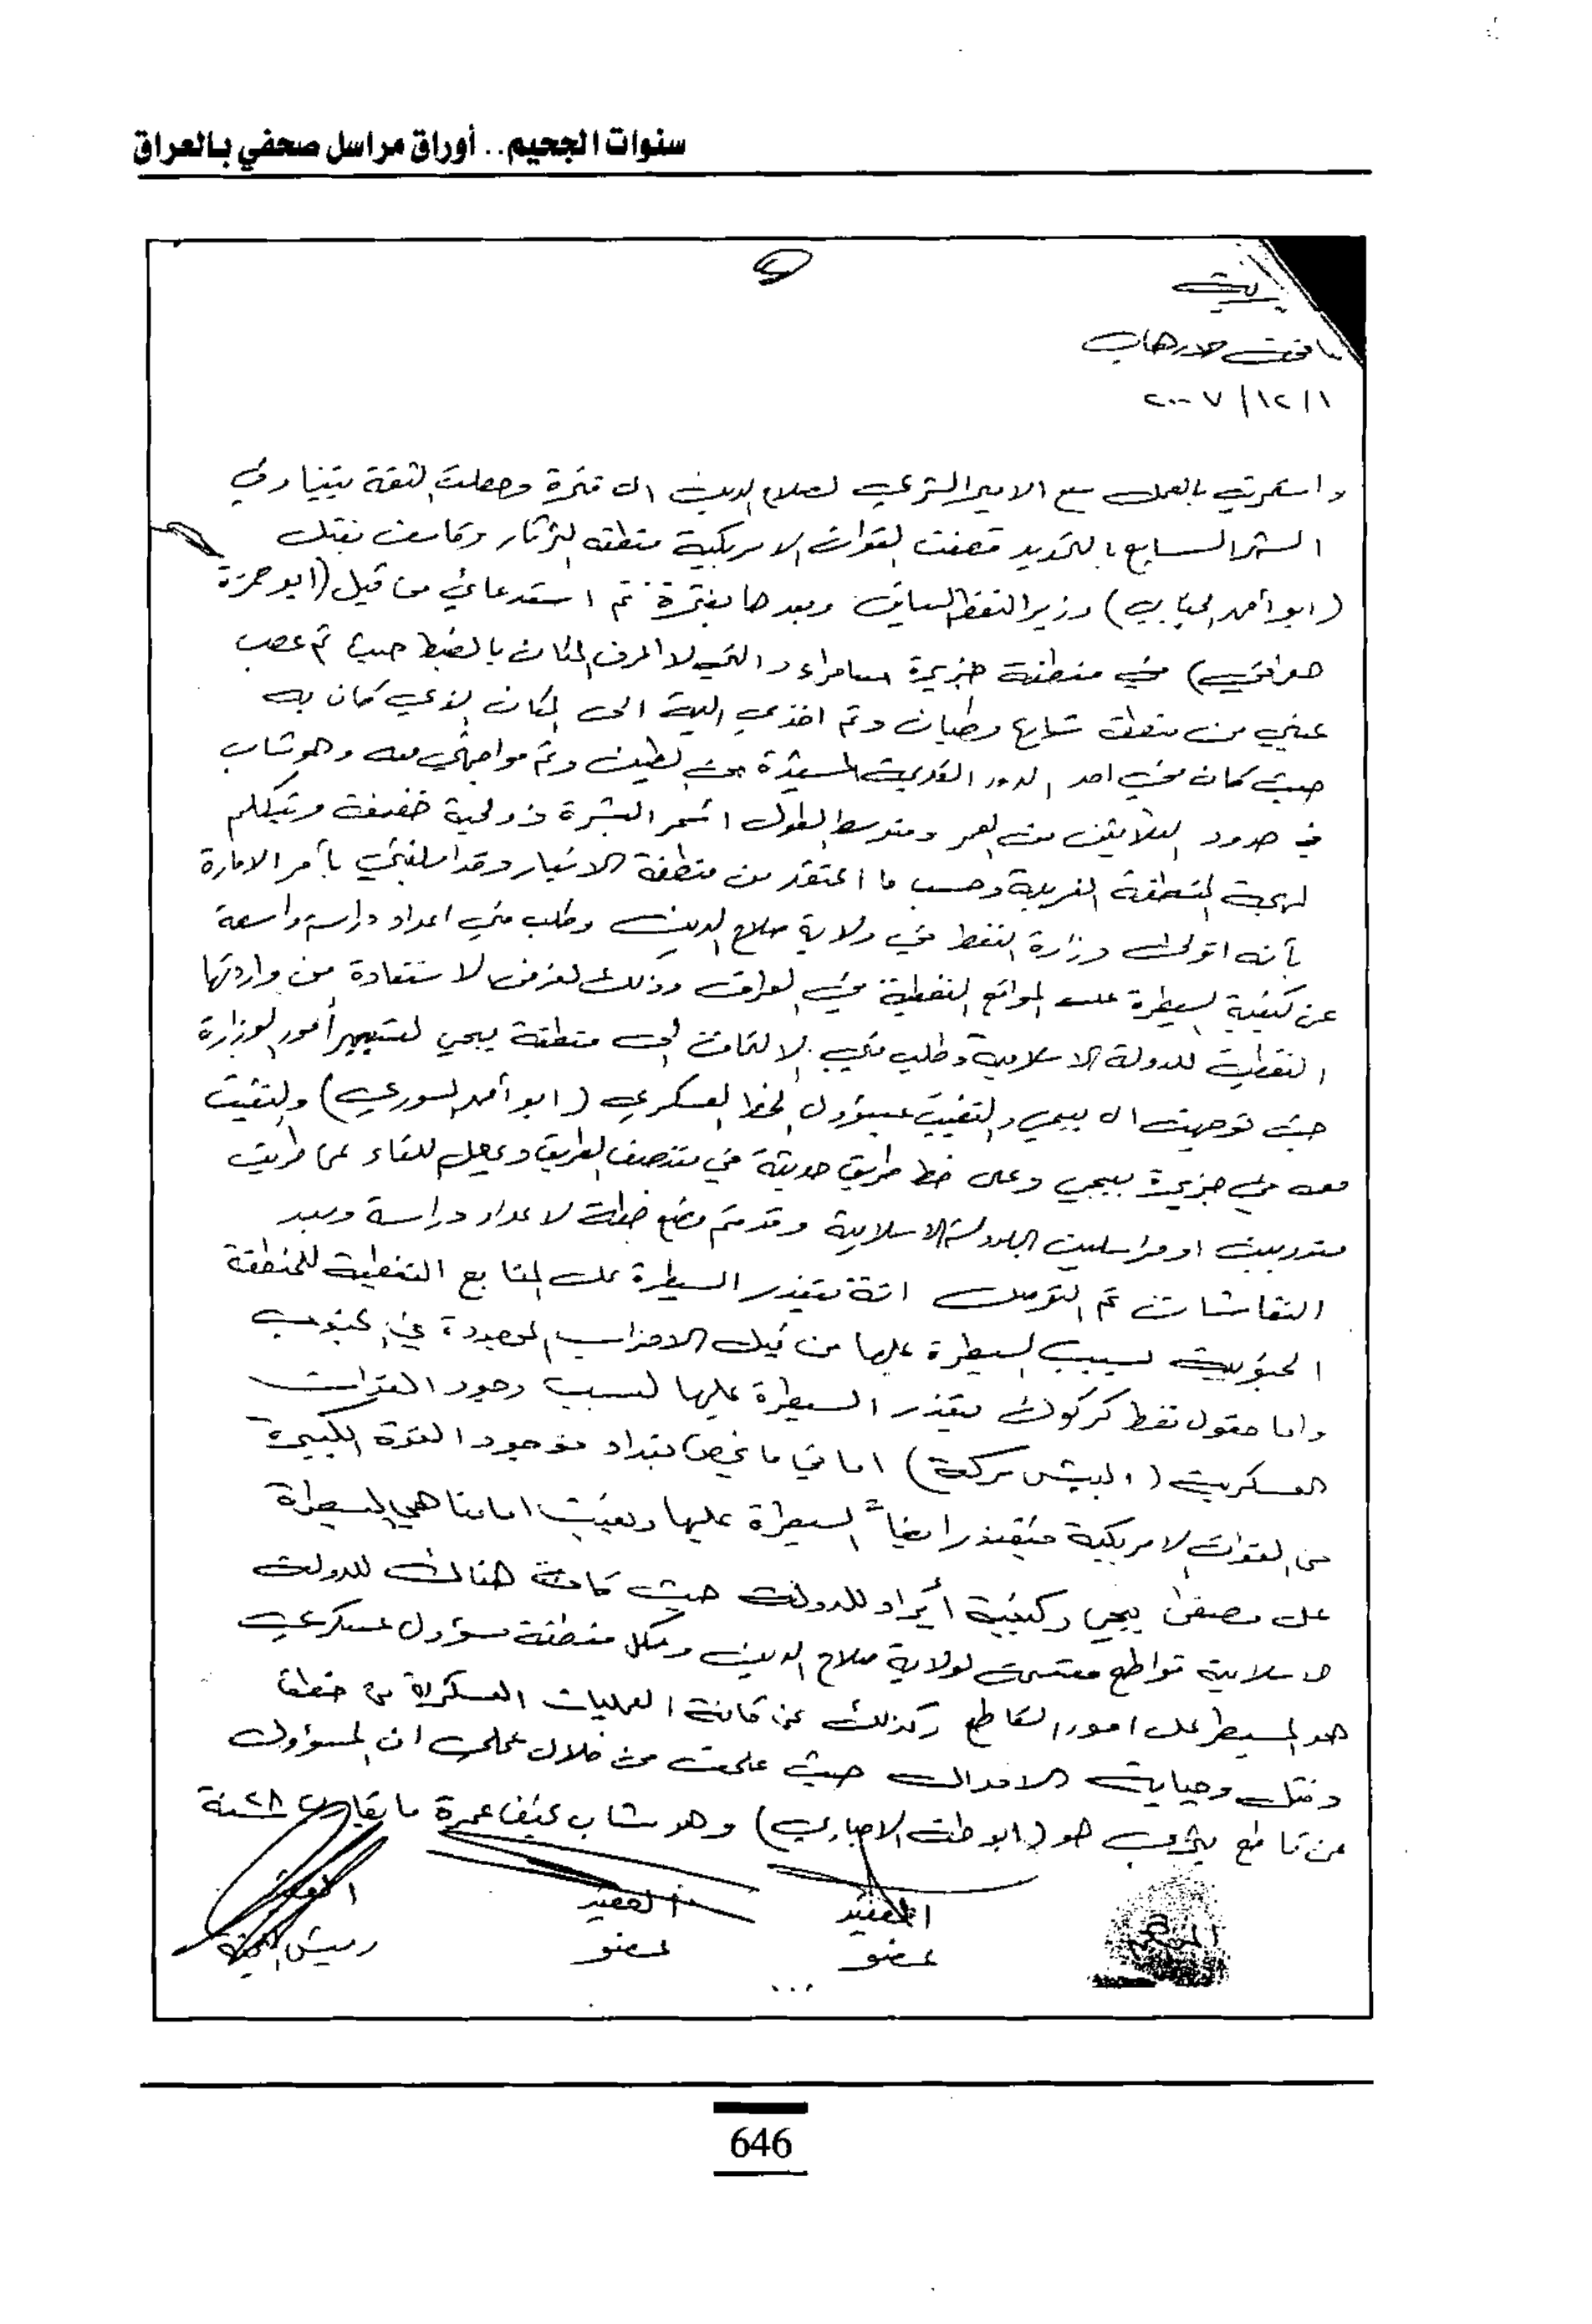 سنوات الجحيم.. أوراق مراسل صحفي بالعراق
الارهاب
٢٠٠٧/١٢/١
واستمريت بالعمل مع الامير الشرعي لصلاح الدين الى فترة وحصلت الثقة بيننا وفي
الشهر السابع بالتحديد قصفت القوات الامريكية منطقة الثرثار وقامت بقتل
(ابو أحمد الجبابي) وزير النفط السابق وبعدها بفترة تم استدعائي من قبل (ابو حمزة
في منطقة جزيرة سامراء والتي لا اعرف المكان بالضبط حيث تم عصب
عيني من منطقة وتم اخذي الية الى المكان الذي كان به
حيث كان في احد الدور القديمة المشيدة من الطين وتم مواجهتي معه وهو شاب
في حدود الثلاثين من العمر ومتوسط الطول اسمر البشرة ذو لحية خفيفة ويتكلم
لهجة المنطقة الغربية وحسب ما اعتقد من منطقة الانبار وقد ابلغني بأمر الامارة
بأنه اتولى وزارة النفط في ولاية صلاح الدين وطلب مني اعداد دراسة واسعة
عن كيفية السيطرة على المواقع النفطية في العراق وذلك لغرض الاستفادة من وارداتها
النفطية للدولة الاسلامية وطلب مني الالتحاق الى منطقة بيجي لتسيير أمور الوزارة
حيث توجهت الى بيجي والتقيت بمسؤول الخط العسكري (ابو أحمد السوري) والتقيت
معه في جزيرة بيجي وعلى خط طريق حديثة في منتصف الطريق ويعمل للقاء عن طريق
مندوبين او مراسلين الدولة الاسلامية وقد تم وضع خطة لاعداد دراسة وبعد
النقاشات تم التوصل انة يتعذر السيطرة على المنابع النفطية للمنطقة
الجنوبية بسبب السيطرة عليها من قبل الاحزاب الموجودة في الجنوب
واما حقول نفط كركوك يتعذر السيطرة عليها لسبب وجود القوات
العسكرية (البيش مركة) اما في ما يخص بغداد فوجود القوة الكبيرة
من القوات الامريكية فيتعذر ايضاً السيطرة عليها وبقيت امامنا هي السيطرة
على مصفى بيجي وكيفية للدولة حيث كانت هناك للدولة
الاسلامية قواطع مقسمة لولاية صلاح الدين ولكل منطقة مسؤول عسكري
هو المسيطر على امور القاطع وكذلك عن كافة العمليات العسكرية من خطف
وقتل وجباية الاموال حيث علمت من خلال عملي ان المسؤول
عن قاطع يثرب هو (ابو طلحة) وهو شاب نحيف عمرة ما يقارب ٢٨ سنة
العقيد
عضو
العقيد
عضو
رئيس اللجنة
646